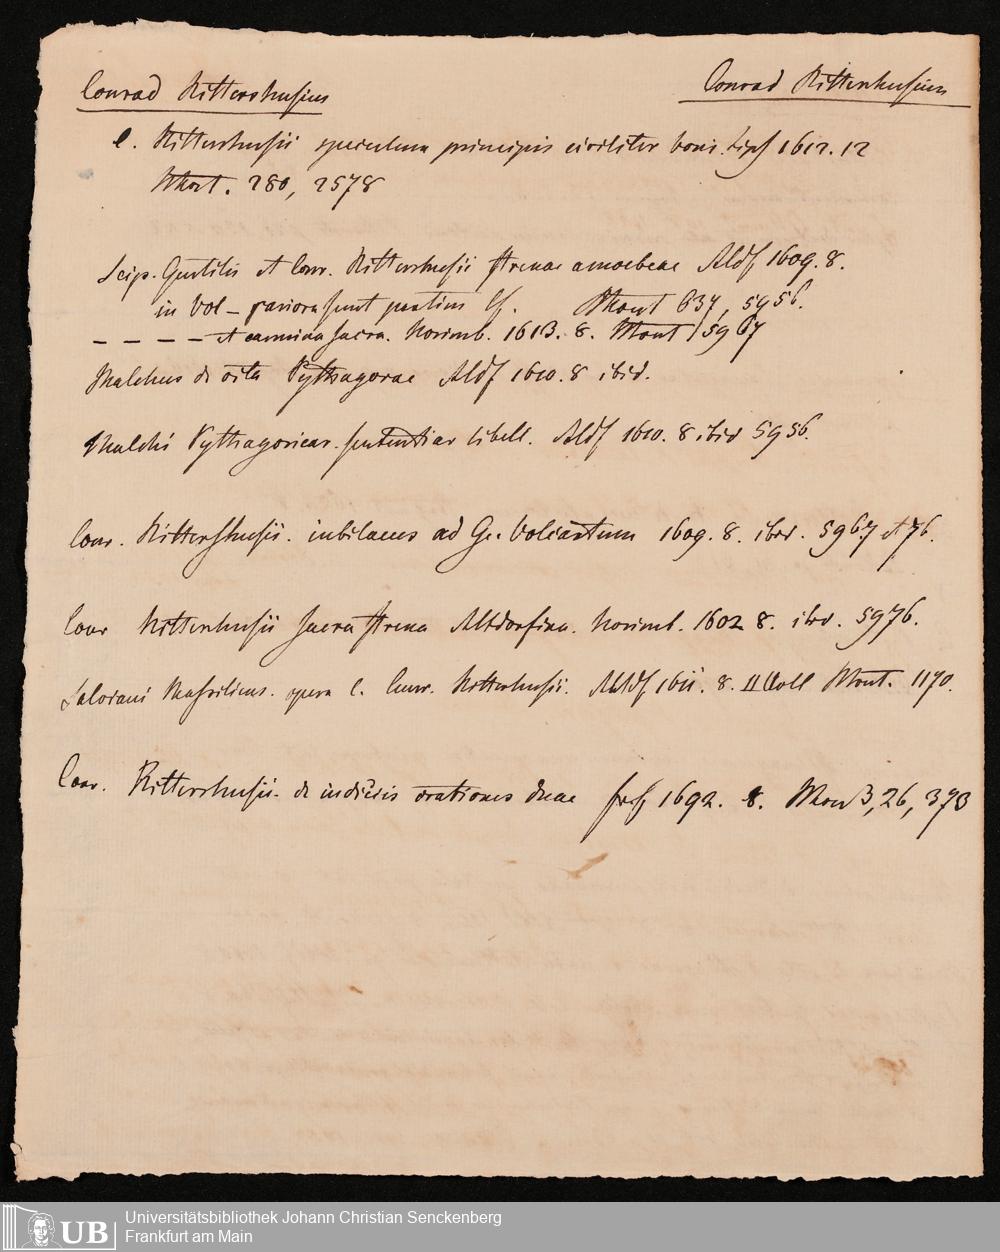 Conrad Rittershusius
Conrad Rittershusium
C. Rittershusii speculum principis civiliter boni. Lips 1612. 12
Mont. 280, 2578
Scip. Gentilis et Conr. Rittershusii strenae amoebeae Altdf 1609. 8.
in Vol – Mont 637, 5956.
– – – – et carmina sacra. Norimb. 1613. 8. Mont 5967
Malchus de vita Pythagorae Altdf 1610. 8 ibid.
Malchi Pythagoricar. sententiar libell. Altdf 1610. 8 ibid 5956.
Conr. Rittershusii. iubilaeus ad Ge. Volcartum 1609. 8. ibid. 5967 et 76.
Conr Rittershusii sacra strena Altdorfina. Norimb. 1602 8. ibid. 5976.
Salviani Massiliens. opera C. Conr. Rittershusii. Altdf 1611. 8. II Voll Mont. 1170.
Conr. Rittershusii. de iudiciis orationes duae 1692. 8. 3, 26, 373
UB
Universitätsbibliothek Johann Christian Senckenberg
Frankfurt am Main